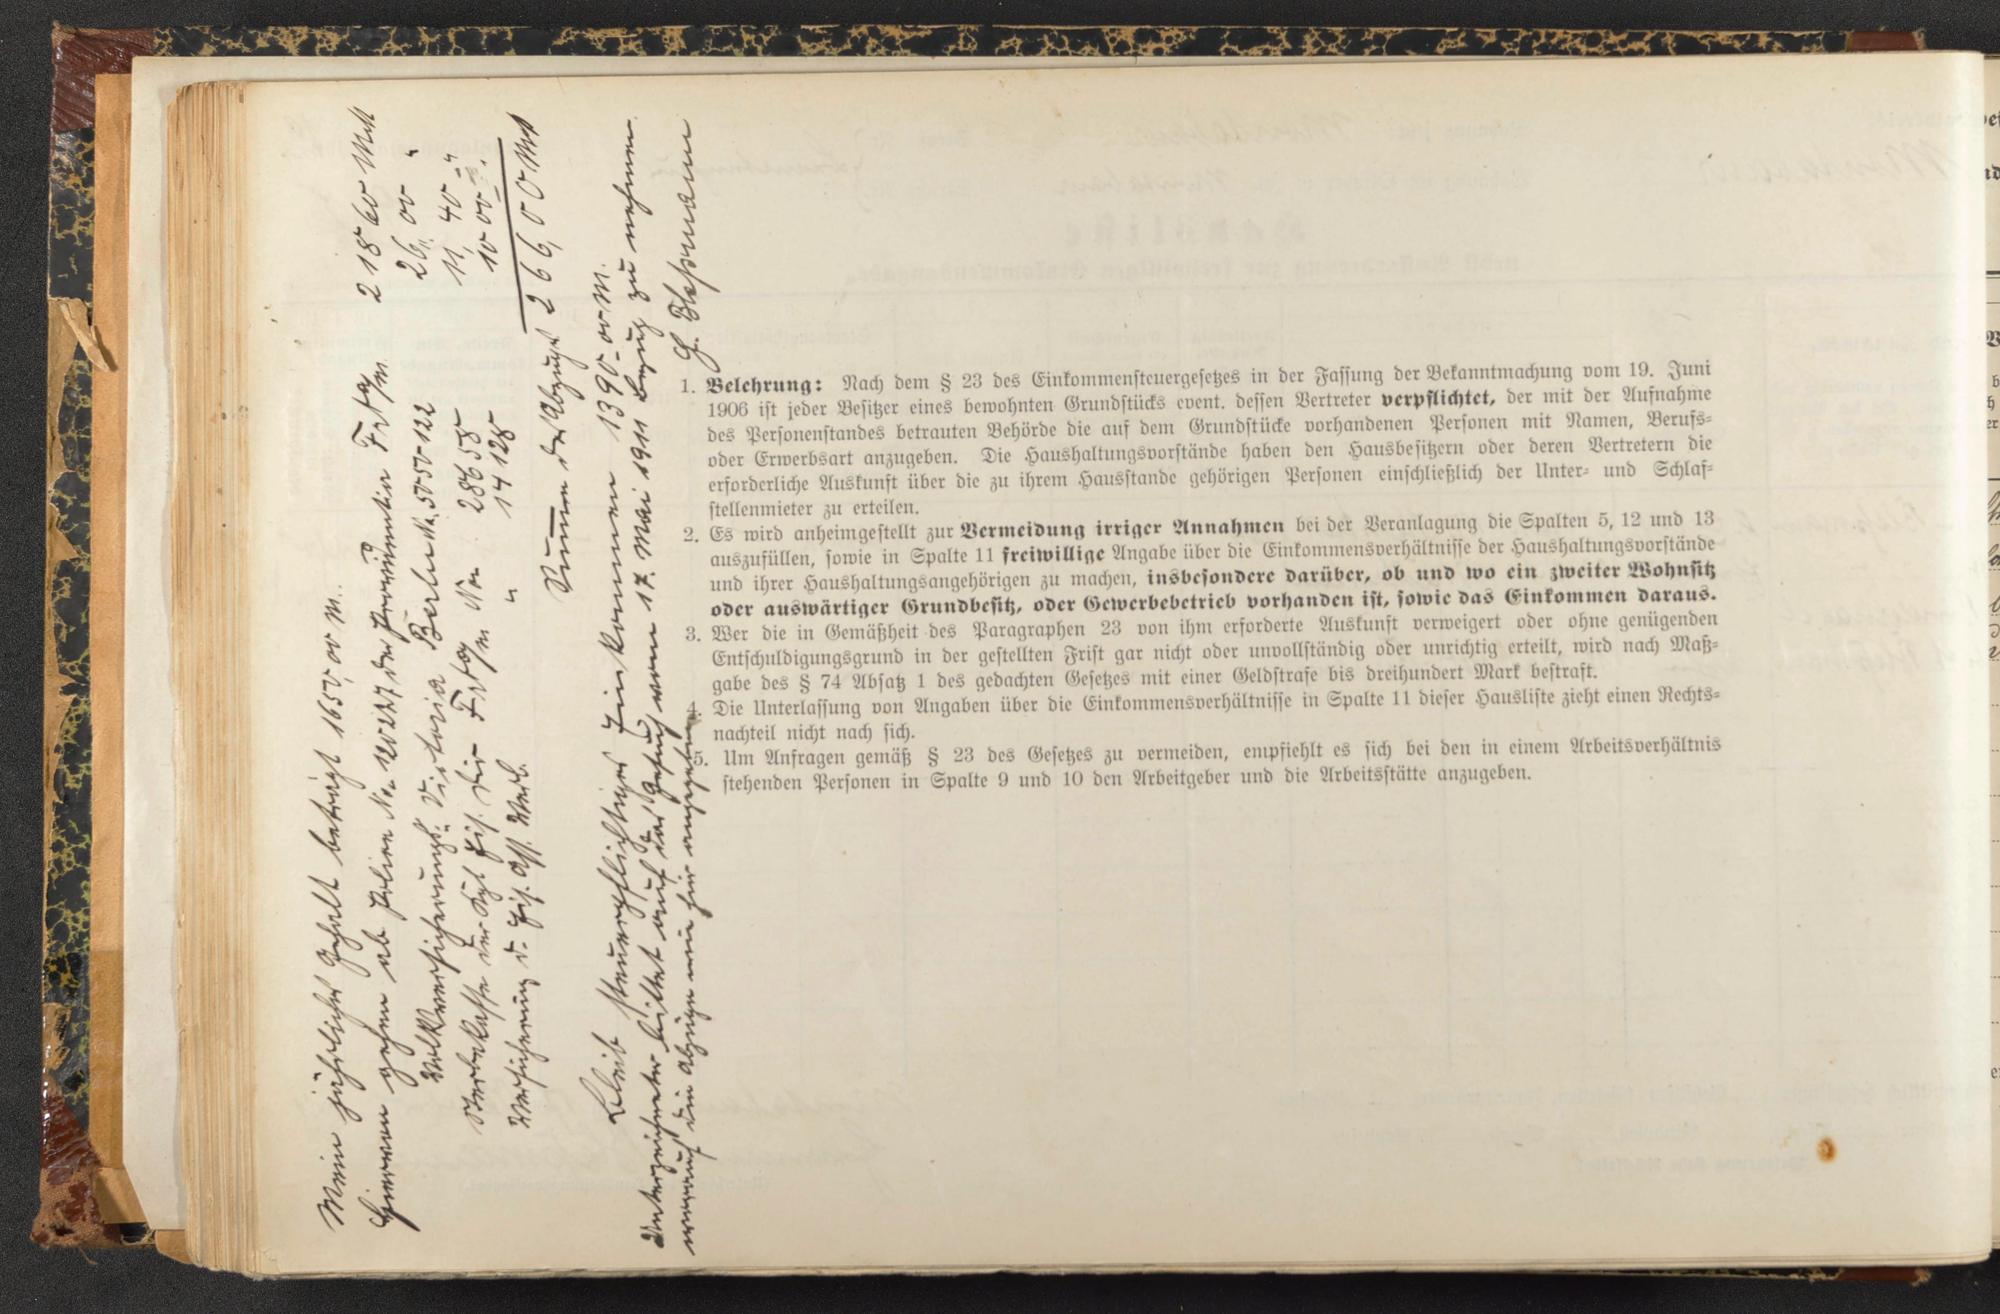 Mein jährliches Gehalt beträgt 1650,00 M.
Hiervon gehen ab Police No 120277 der Providentia Frkf a/M. 218 60 Mk
Volksversicherung Victoria Berlin No. 5050122 26,00 "
Sterbekasse der Kgl Eis. Dir Frkf a/M No. 28658 11,40 "
Versicherung d. Eis. Ass. Verb. " 14128 10 00 "
Summe der Abzüge 266,00 Mk
Bleibt steuerpflichtiges Einkommen 1390-00 M.
Unterzeichneter bittet auf das Gesuch vom 17. Mai 1911 Bezug zu nehmen
worauf die Abzüge wie hier angegeben
1. Belehrung: Nach dem § 23 des Einkommensteuergesetzes in der Fassung der Bekanntmachung vom 19. Juni
1906 ist jeder Besitzer eines bewohnten Grundstücks event. dessen Vertreter verpflichtet, der mit der Aufnahme
des Personenstandes betrauten Behörde die auf dem Grundstücke vorhandenen Personen mit Namen, Berufs-
oder Erwerbsart anzugeben. Die Haushaltungsvorstände haben den Hausbesitzern oder deren Vertretern die
erforderliche Auskunft über die zu ihrem Hausstande gehörigen Personen einschließlich der Unter- und Schlaf-
stellenmieter zu erteilen.
2. Es wird anheimgestellt zur Vermeidung irriger Annahmen bei der Veranlagung die Spalten 5, 12 und 13
auszufüllen, sowie in Spalte 11 freiwillige Angabe über die Einkommensverhältnisse der Haushaltungsvorstände
und ihrer Haushaltungsangehörigen zu machen, insbesondere darüber, ob und wo ein zweiter Wohnsitz
oder auswärtiger Grundbesitz, oder Gewerbebetrieb vorhanden ist, sowie das Einkommen daraus.
3. Wer die in Gemäßheit des Paragraphen 23 von ihm erforderte Auskunft verweigert oder ohne genügenden
Entschuldigungsgrund in der gestellten Frist gar nicht oder unvollständig oder unrichtig erteilt, wird nach Maß-
gabe des § 74 Absatz 1 des gedachten Gesetzes mit einer Geldstrafe bis dreihundert Mark bestraft.
4. Die Unterlassung von Angaben über die Einkommensverhältnisse in Spalte 11 dieser Hausliste zieht einen Rechts-
nachteil nicht nach sich.
5. Um Anfragen gemäß § 23 des Gesetzes zu vermeiden, empfiehlt es sich bei den in einem Arbeitsverhältnis
stehenden Personen in Spalte 9 und 10 den Arbeitgeber und die Arbeitsstätte anzugeben.